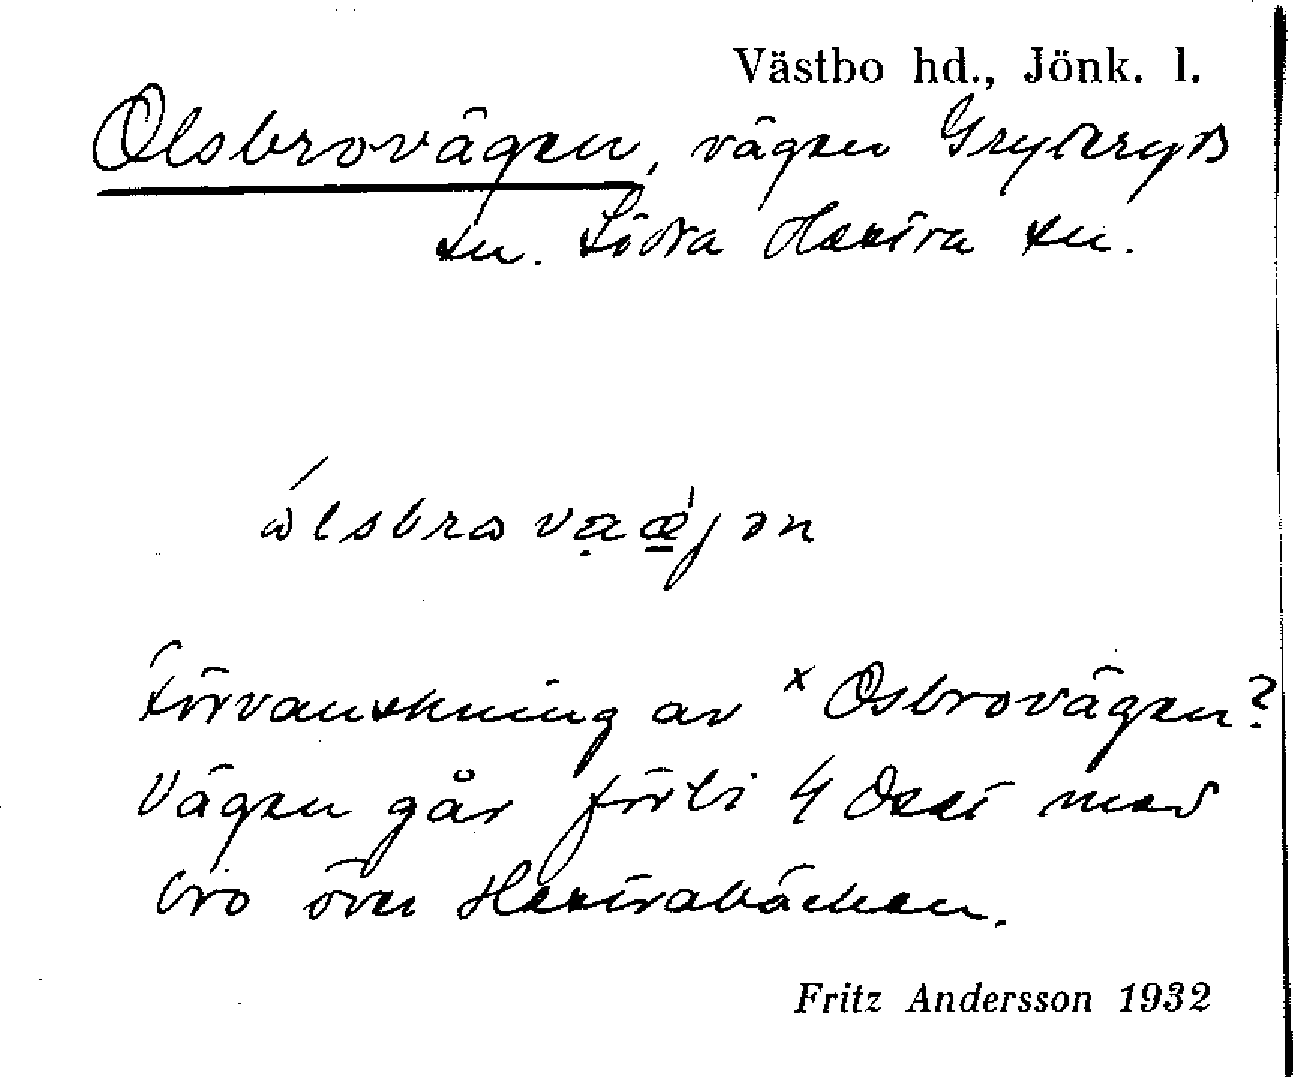 Västbo hd., Jönk. l.
Olsbrovägen, vägen Gryteryds
sn. Södra Hestra sn.
ålsbrovaæjən
Förvanskning av ˣOsbrovägen?
Vägen går förbi 4 Oset med
bro över Hestrabäcken.
Fritz Andersson 1932